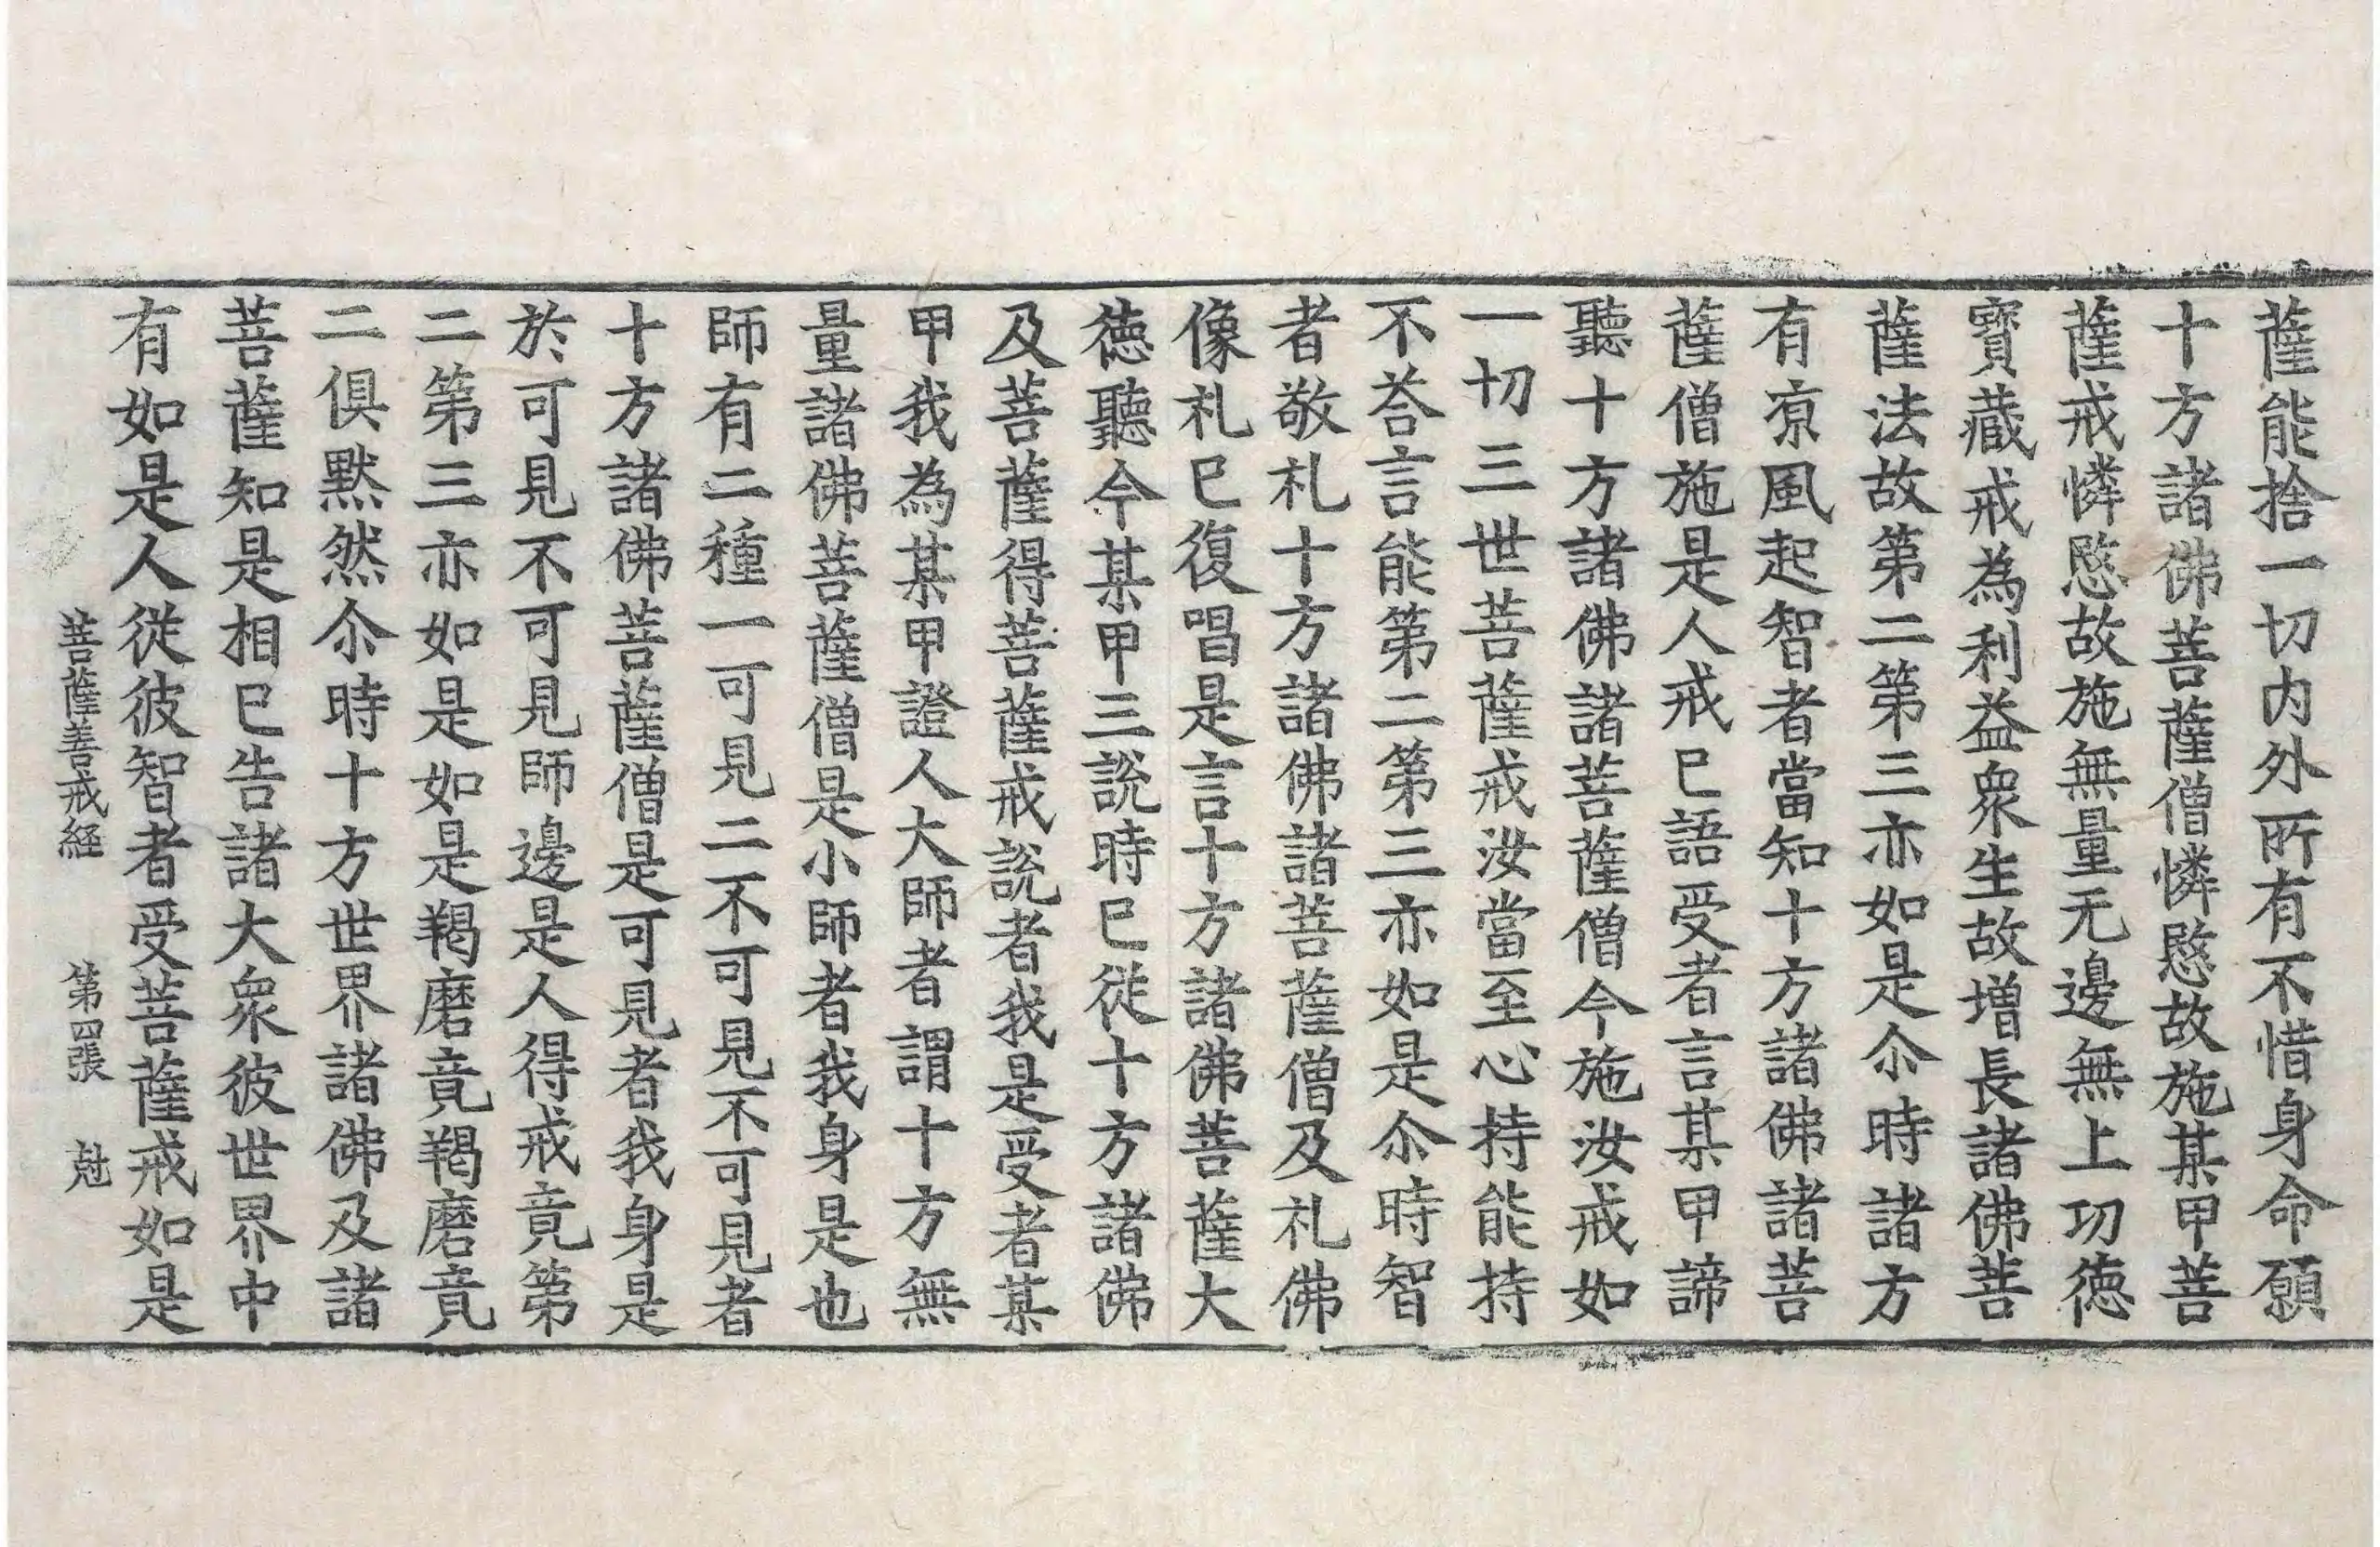 薩能捨一切内外所有不惜身命願
十方諸佛菩薩僧憐愍故施某甲菩
薩戒憐愍故施無量无邊無上功徳
寳藏戒為利益衆生故增長諸佛菩
薩法故第二第三亦如是尒時諸方
有凉風起智者當知十方諸佛諸菩
薩僧施是人戒已語受者言某甲諦
聽十方諸佛諸菩薩僧今施汝戒如
一切三世菩薩戒汝當至心持能持
不荅言能第二第三亦如是尒時智
者敬礼十方諸佛諸菩薩僧及礼佛
像礼已復唱是言十方諸佛菩薩大
徳聽今某甲三說時已従十方諸佛
及菩薩得菩薩戒說者我是受者某
甲我為某甲證人大師者謂十方無
量諸佛菩薩僧是小師者我身是也
師有二種一可見二不可見不可見者
十方諸佛菩薩僧是可見者我身是
於可見不可見師邊是人得戒竟第
二第三亦如是如是羯磨竟羯磨竟
二俱黙然尒時十方世界諸佛及諸
菩薩知是相已告諸大衆彼世界中
有如是人従彼智者受菩薩戒如是
菩薩善戒経 第四張 尅